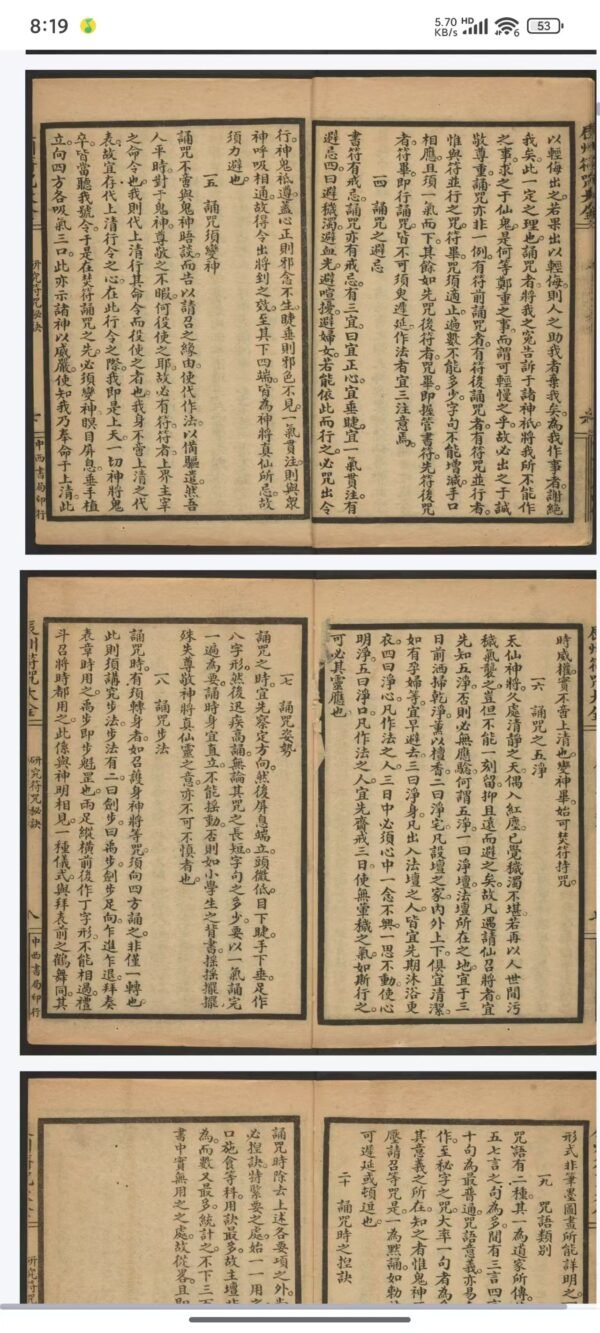 8:19
5.70
KB/s
HD
6
53
以輕侮出之若果出以輕侮則人之助我者棄我矣為我作事者謝絕
我矣此一定之理也誦咒者將我之冤告訴于諸神祇將我所不能作
之事求之于仙鬼是何等鄭重之事而謂可輕慢之乎故必出之于誠
敬尊重誦咒亦非一例有符前誦咒者有符後誦咒者有符咒並行者
惟與符並行之咒符畢咒須適止遍數不能多少字句不能增減手口
相應且須一氣而下其餘如先咒後符者咒畢即握管書符先符後咒
者符畢即行誦咒皆不可須臾遲延作法者宜三注意焉
一四 誦咒之避忌
書符有戒忌誦咒亦有戒忌有三宜曰宜正心宜垂睫宜一氣貫注有
避忌四曰避穢濁避血光避喧擾避婦女若能依此而行之必咒出令
行神鬼祗遵蓋心正則邪念不生睫垂則邪色不見一氣貫注則與眾
神呼吸相通故得令出將到之效至其下四端皆為神將真仙所忌故
須力避也
一五 誦咒須變神
誦咒不啻與鬼神晤談而告以請召之緣由使代作法以備驅遣然吾
人平時對于鬼神尊敬之不暇何從使之耶故必有符符者上界主宰
之命令也我則代上清行其命令而役使之者也我身不啻上清之代
表故宜存代上清行令之心在此行令之際我即是上天一切神將鬼
卒皆當聽我號令于是在焚符誦咒之先必須變神瞑目屏息垂手植
立向四方各吸氣三口此亦示諸神以威嚴使知我乃奉命于上清此
研究符咒秘訣
七
中西書局印行
時威權實不啻上清也變神畢始可焚符持咒
一六 誦咒之五淨
天仙神將久處清靜之天偶入紅塵已覺穢濁不堪若再以人世間污
穢氣襲之豈但不能一刻留抑且遠而避之矣故凡遇請仙召將者宜
先知五淨否則必無應驗何謂五淨一曰淨壇法壇所在之地宜于三
日前洒掃乾淨薰以檀香二曰淨宅凡設壇之家內外上下俱宜清潔
如有孕婦等宜早避去三曰淨身凡出入法壇之人皆宜先期沐浴更
衣四曰淨心凡作法之人三日中必須心中一念不興一思不動使心
明淨五曰淨口凡作法之人宜先齋戒三日使無葷穢之氣如斯行之
可必其靈應也
一七 誦咒姿勢
誦咒之時宜先察定方向然後屏息端立頭微低目下睫手下垂足作
八字形然後迅疾高誦無論其咒之長短字句之多少要以一氣誦完
一遍為要誦時身宜直立不能搖動否則如小學生之背書搖搖擺擺
殊失尊敬神將真仙靈之意亦不可不慎者也
一八 誦咒步法
誦咒時有須轉身者如召護身神將等咒須向四方誦之非僅一轉也
此則須講究步法步法有二曰劍步曰禹步劍步足向乍進乍退拜奏
表章時用之禹步即步魁罡也兩足縱橫前後作丁字形不能相過禮
斗召將時都用之此係與神明相見一種儀式與拜表前之鶴舞同其
辰州符咒大全
研究符咒秘訣
八
中西書局印行
形式非筆墨圖畫所能詳明之
一九 咒語類別
咒語有二種其一為道家所傳
五七言之句為多間有三言四言
十句為最普通咒語意義亦易
作至秘字之咒大率一句者為
其意義之所在知之者惟鬼神
壓請召等咒是一為默誦如勅
可遲延或頓逗也
二十 誦咒時之揑訣
誦咒時除去上述各要項之外
必揑訣特緊要之處始一一用之
口施食等科用訣最多故主壇
為而數又最多統計之不下三
書中實無用之之處故從畧且